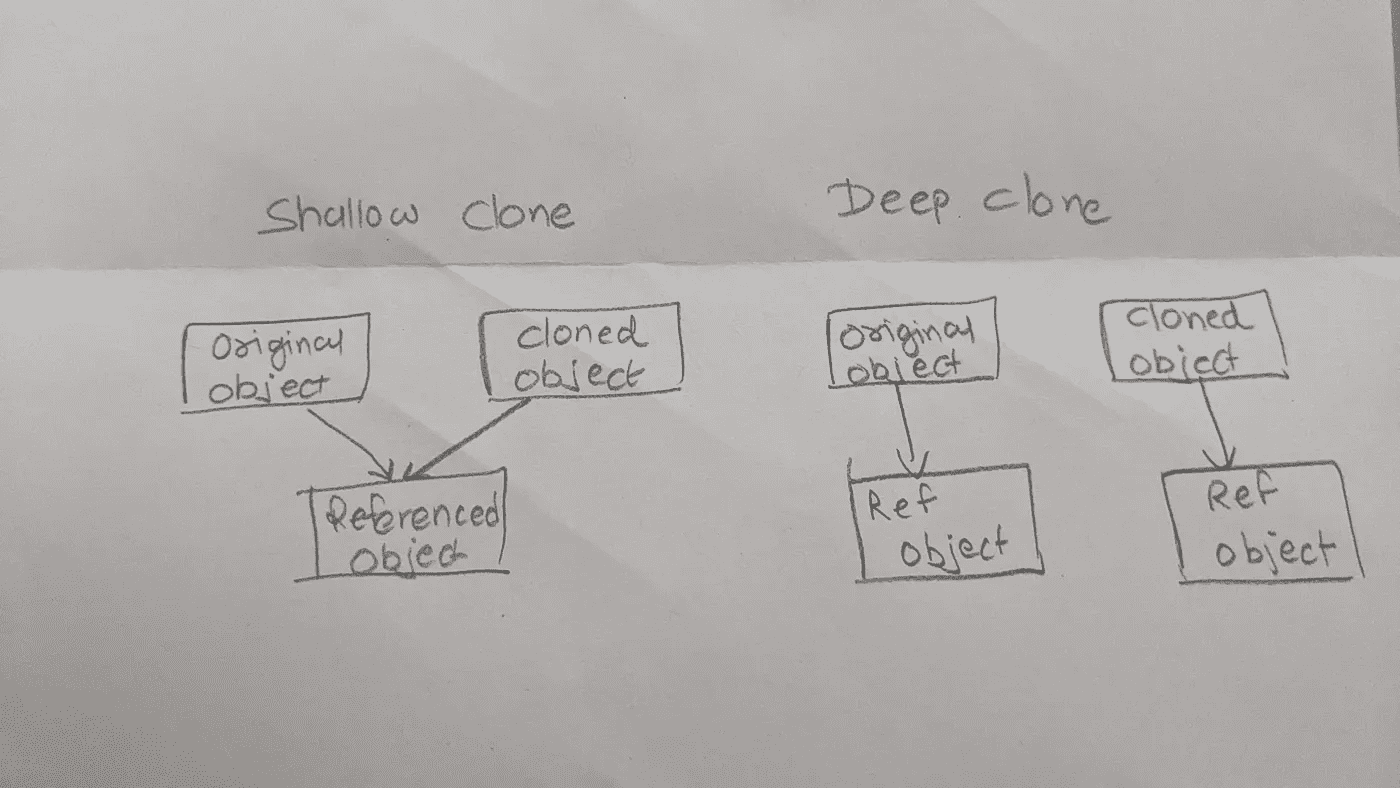 Shallow Clone
Deep. Clone
Original
object
Cloned
object
Referenced
object
Original
object
Cloned
object
Ref
object
Ref
object